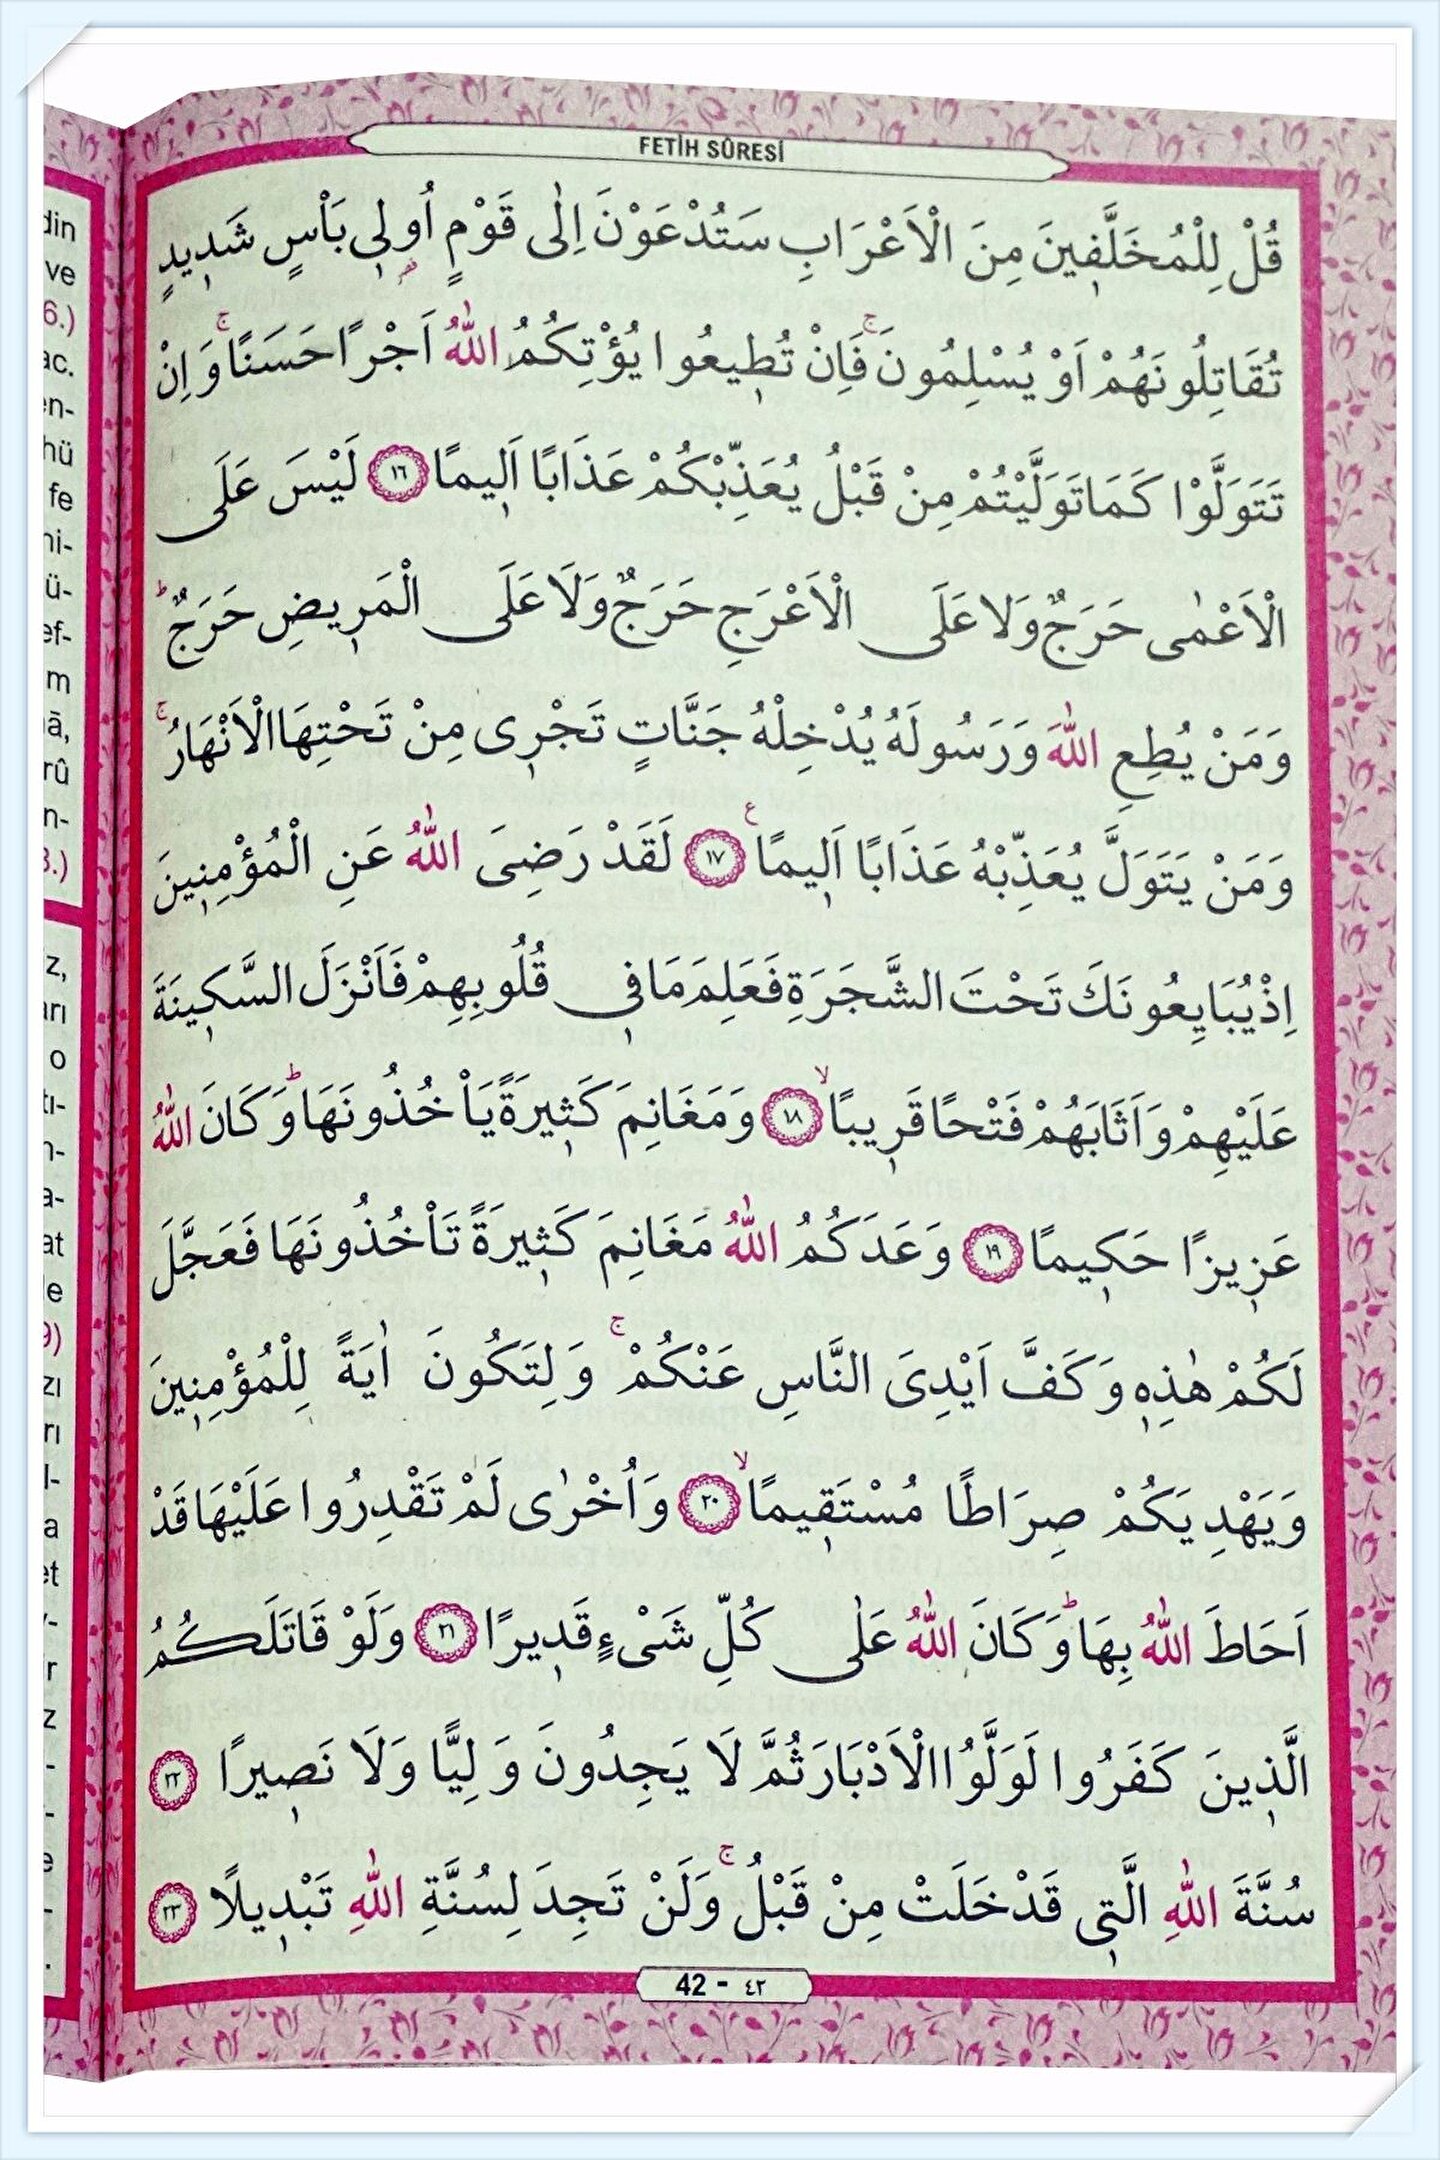 FETİH SÛRESİ
قُلْ لِلْمُخَلَّف۪ينَ مِنَ الْاَعْرَابِ سَتُدْعَوْنَ اِلٰى قَوْمٍ اُو۬ل۪ي بَاْسٍ شَد۪يدٍ
تُقَاتِلُونَهُمْ اَوْ يُسْلِمُونَۚ فَاِنْ تُط۪يعُوا يُؤْتِكُمُ اللّٰهُ اَجْرًا حَسَنًاۚ وَاِنْ
تَتَوَلَّوْا كَمَا تَوَلَّيْتُمْ مِنْ قَبْلُ يُعَذِّبْكُمْ عَذَابًا اَل۪يمًا ١٦ لَيْسَ عَلَى
الْاَعْمٰى حَرَجٌ وَلَا عَلَى الْاَعْرَجِ حَرَجٌ وَلَا عَلَى الْمَر۪يضِ حَرَجٌۜ
وَمَنْ يُطِعِ اللّٰهَ وَرَسُولَهُ يُدْخِلْهُ جَنَّاتٍ تَجْر۪ى مِنْ تَحْتِهَا الْاَنْهَارُۚ
وَمَنْ يَتَوَلَّ يُعَذِّبْهُ عَذَابًا اَل۪يمًا ع ١٧ لَقَدْ رَضِىَ اللّٰهُ عَنِ الْمُؤْمِن۪ينَ
اِذْ يُبَايِعُونَكَ تَحْتَ الشَّجَرَةِ فَعَلِمَ مَا ف۪ى قُلُوبِهِمْ فَاَنْزَلَ السَّك۪ينَةَ
عَلَيْهِمْ وَاَثَابَهُمْ فَتْحًا قَر۪يبًاۙ ١٨ وَمَغَانِمَ كَث۪يرَةً يَاْخُذُونَهَاۜ وَكَانَ اللّٰهُ
عَز۪يزًا حَك۪يمًا ١٩ وَعَدَكُمُ اللّٰهُ مَغَانِمَ كَث۪يرَةً تَاْخُذُونَهَا فَعَجَّلَ
لَكُمْ هٰذِه۪ وَكَفَّ اَيْدِىَ النَّاسِ عَنْكُمْۚ وَلِتَكُونَ اٰيَةً لِلْمُؤْمِن۪ينَ
وَيَهْدِيَكُمْ صِرَاطًا مُسْتَق۪يمًاۙ ٢٠ وَاُخْرٰى لَمْ تَقْدِرُوا عَلَيْهَا قَدْ
اَحَاطَ اللّٰهُ بِهَاۜ وَكَانَ اللّٰهُ عَلٰى كُلِّ شَىْءٍ قَد۪يرًا ٢١ وَلَوْ قَاتَلَكُمُ
الَّذ۪ينَ كَفَرُوا لَوَلَّوُا الْاَدْبَارَ ثُمَّ لَا يَجِدُونَ وَلِيًّا وَلَا نَص۪يرًا ٢٢
سُنَّةَ اللّٰهِ الَّت۪ى قَدْ خَلَتْ مِنْ قَبْلُۚ وَلَنْ تَجِدَ لِسُنَّةِ اللّٰهِ تَبْد۪يلًا ٢٣
42 - ٤٢